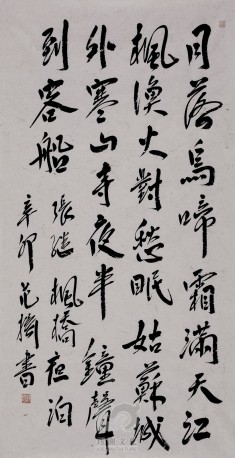 月落烏啼霜滿天江
楓漁火對愁眠姑蘇城
外寒山寺夜半鐘聲
到客船 張繼楓橋夜泊
辛卯范橋書